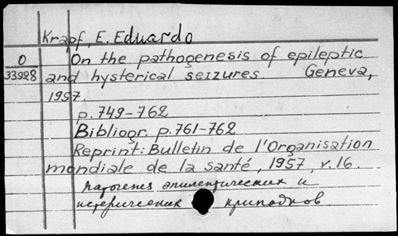 Krapf, E. Eduardo
0 On the pathogenesis of epileptic
33928 and hysterical seizures Geneva,
1957.
p.749-762
Bibliogr. p.761-762
Reprint: Bulletin de l'Organisation
mondiale de la santé, 1957, v.16.
патогенез эпилептических и
истерических припадков